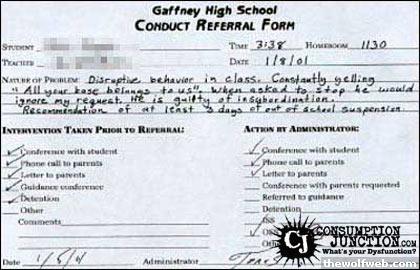 Gaffney High School
CONDUCT REFERRAL FORM
STUDENT TIME 3:38 HOMEROOM 1130
TEACHER DATE 1/8/01
NATURE OF PROBLEM: Disruptive behavior in class. Constantly yelling
"All your base belongs to us". When asked to stop he would
ignore my request. He is guilty of insubordination.
Recommendation of at least 3 days of out of school suspension
INTERVENTION TAKEN PRIOR TO REFERRAL: ACTION BY ADMINISTRATOR:
Conference with student Conference with student
Phone call to parents Phone call to parents
Letter to parents Letter to parents
Guidance conference Conference with parents requested
Detention Referred to guidance
Other Detention
Comments
Date 1/8/01 Administrator
CJ CONSUMPTION
JUNCTION.COM
"What's your Dysfunction?"
thewolfweb.com